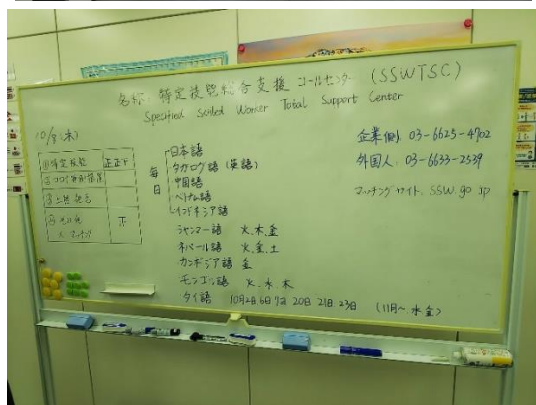 名称: 特定技能総合支援コールセンター (SSWTSC)
Specified Skilled Worker Total Support Center
①特定技能 正正下
毎日
日本語
タガログ語 (英語)
中国語
ベトナム語
インドネシア語
ミャンマー語 火.木.金
ネパール語 火.金.土
カンボジア語 金
モンゴル語 火.水.木
タイ語 10月2日 6日 9日 20日 21日 23日 (11月~ 水金)
企業(個) 03-6625-4702
外国人: 03-6633-2539
マッチングサイト. SSW.go.jp